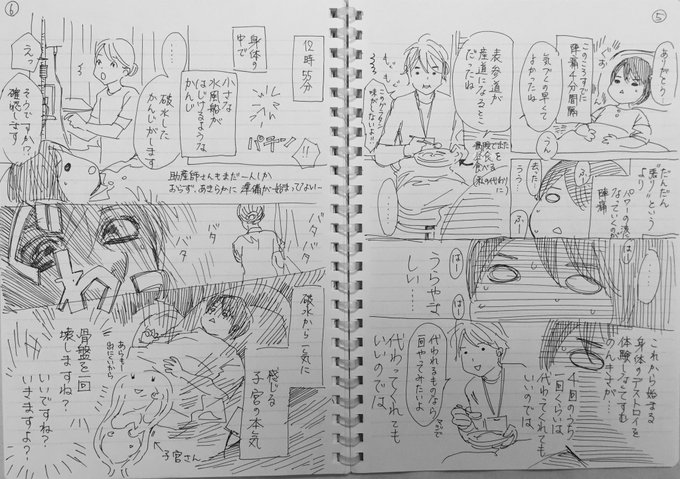 ⑤
ありがとう
このころすでに
陣痛4分間隔
気づくの早くて
よかったね
うん
表参道が
産道になるとこ
だったね
もっ
もっ
病院で出た
夜食を
食べる
(私の代わりに)
だんだん
"張り"という
より
パワーの波に
なっていくのが
陣痛
ふ
ふ
うう…
はー
はー
うらやま
しい……
はー
これから始まる
身体のデストロイを
体験しなくてすむ
のんきさが…
4回のうち
1回くらいは
代わってくれても
いいのでは、
代われるものなら
一回やってみたいよ
マジで
代わってくれても
いいのでは、
⑥
12時55分
身体の
中で
小さな
水風船が
はじけるような
かんじ
パチーン
!!
……
破水した
かんじがします
えっ
そうですか!?
確認します!
助産師さんもまだ一人しか
おらず、あきらかに準備が始まってない…
バタ
バタ
バタ
バタ
破水から一気に
感じる
子宮の本気
あらも〜
出にくいから
骨盤を一回
壊しますね?
いいですね?
いきますよ?
子宮さん